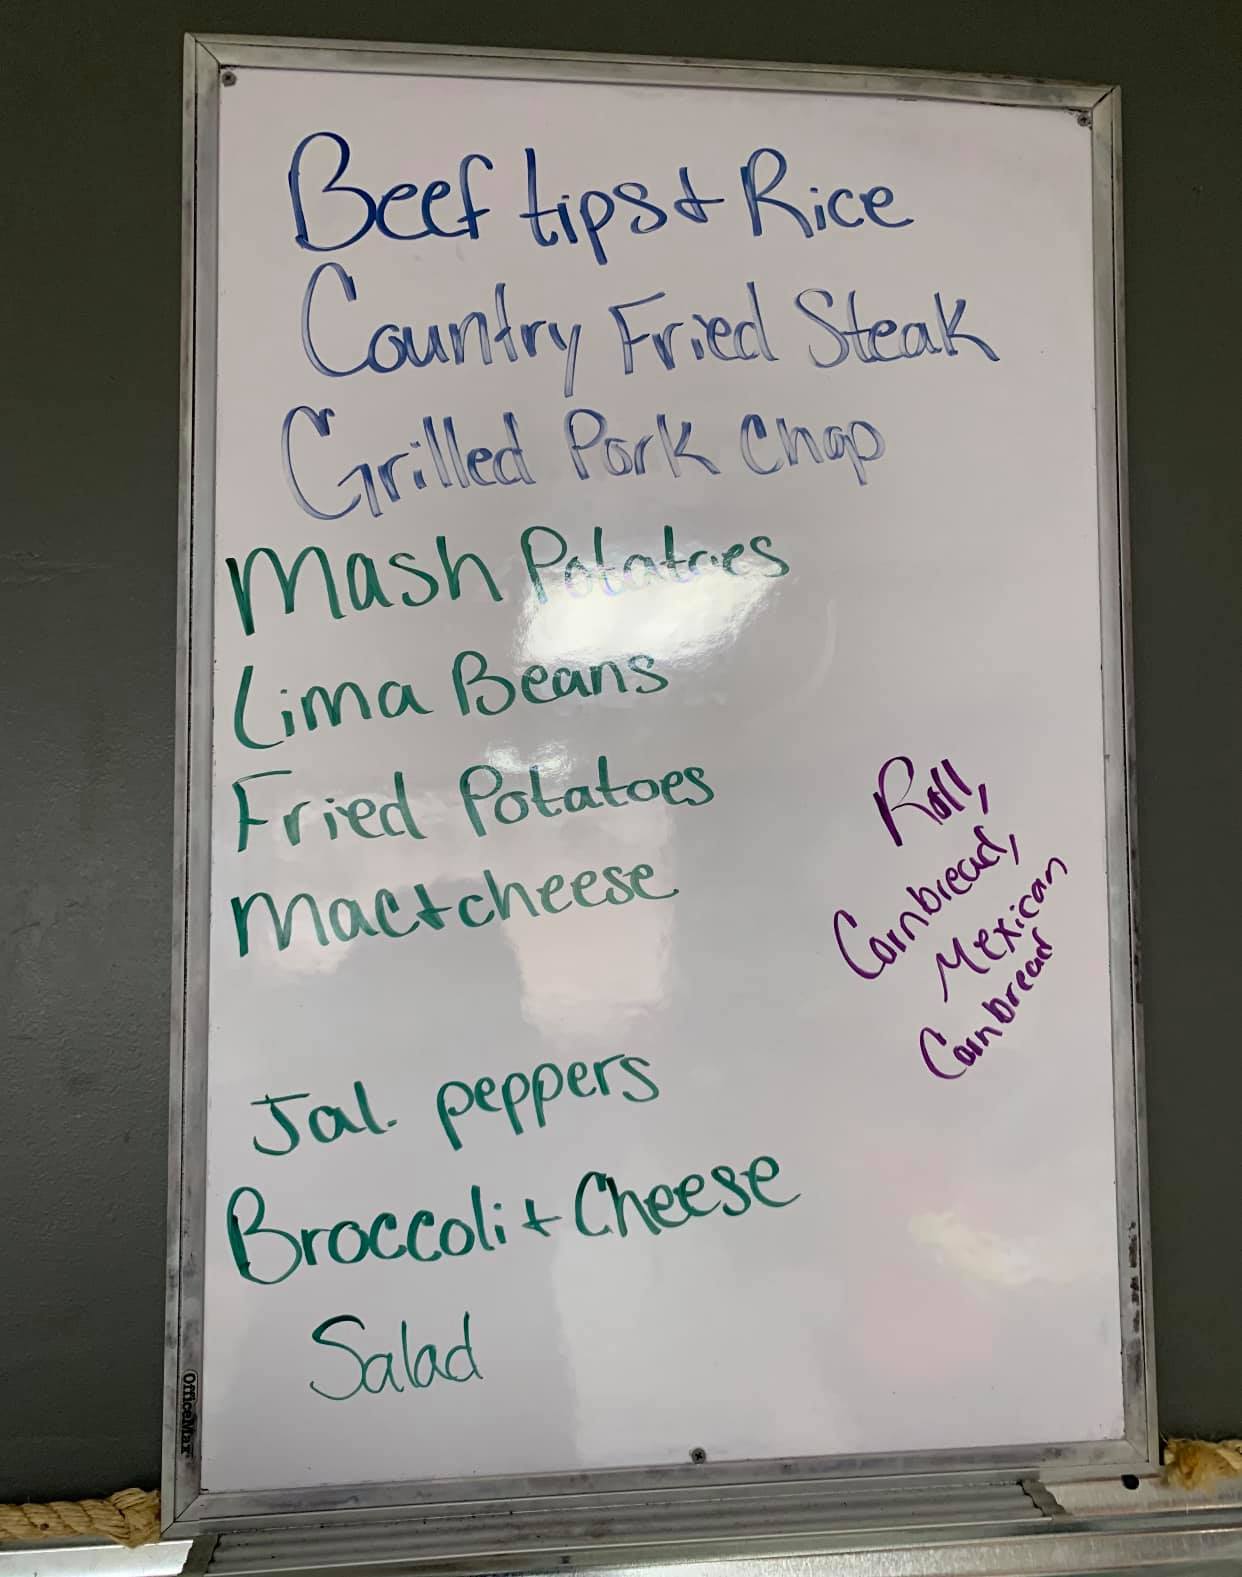 Beef tips & Rice
Country Fried Steak
Grilled Pork Chop
Mash Potatoes
Lima Beans
Fried Potatoes
Mac & cheese
Jal. peppers
Broccoli & Cheese
Salad
Roll,
Cornbread,
Mexican
Cornbread
OfficeMax